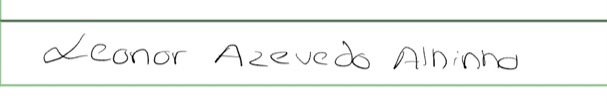 Leonor Azevedo Alhinho